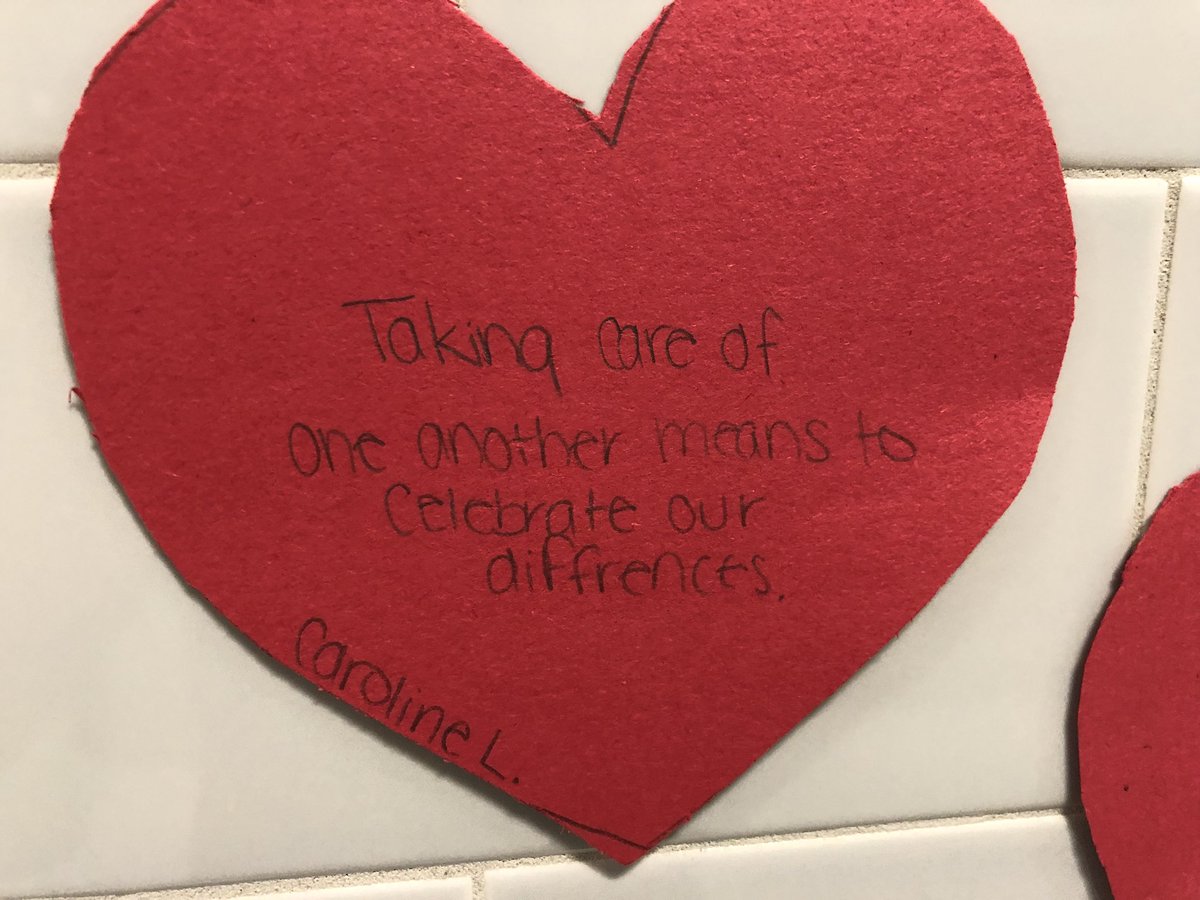 Taking care of
one another means to
Celebrate our
diffrences.
Caroline L.